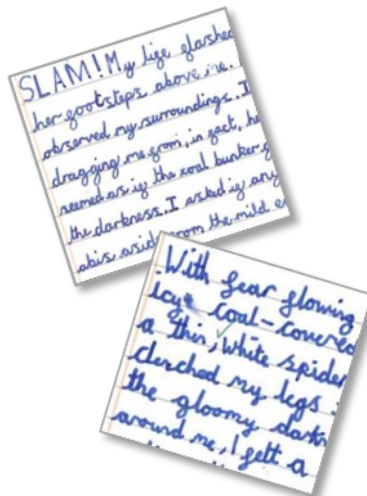 SLAM! My life flashed
her footsteps above me.
observed my surroundings. I
dragging me from, in fact, he
seemed as if the coal bunker
the darkness. I asked if any
abis aside from the mild e
With fear flowing
icy coal-covered
a thin, white spider
clenched my legs
the gloomy dark
around me, I felt a